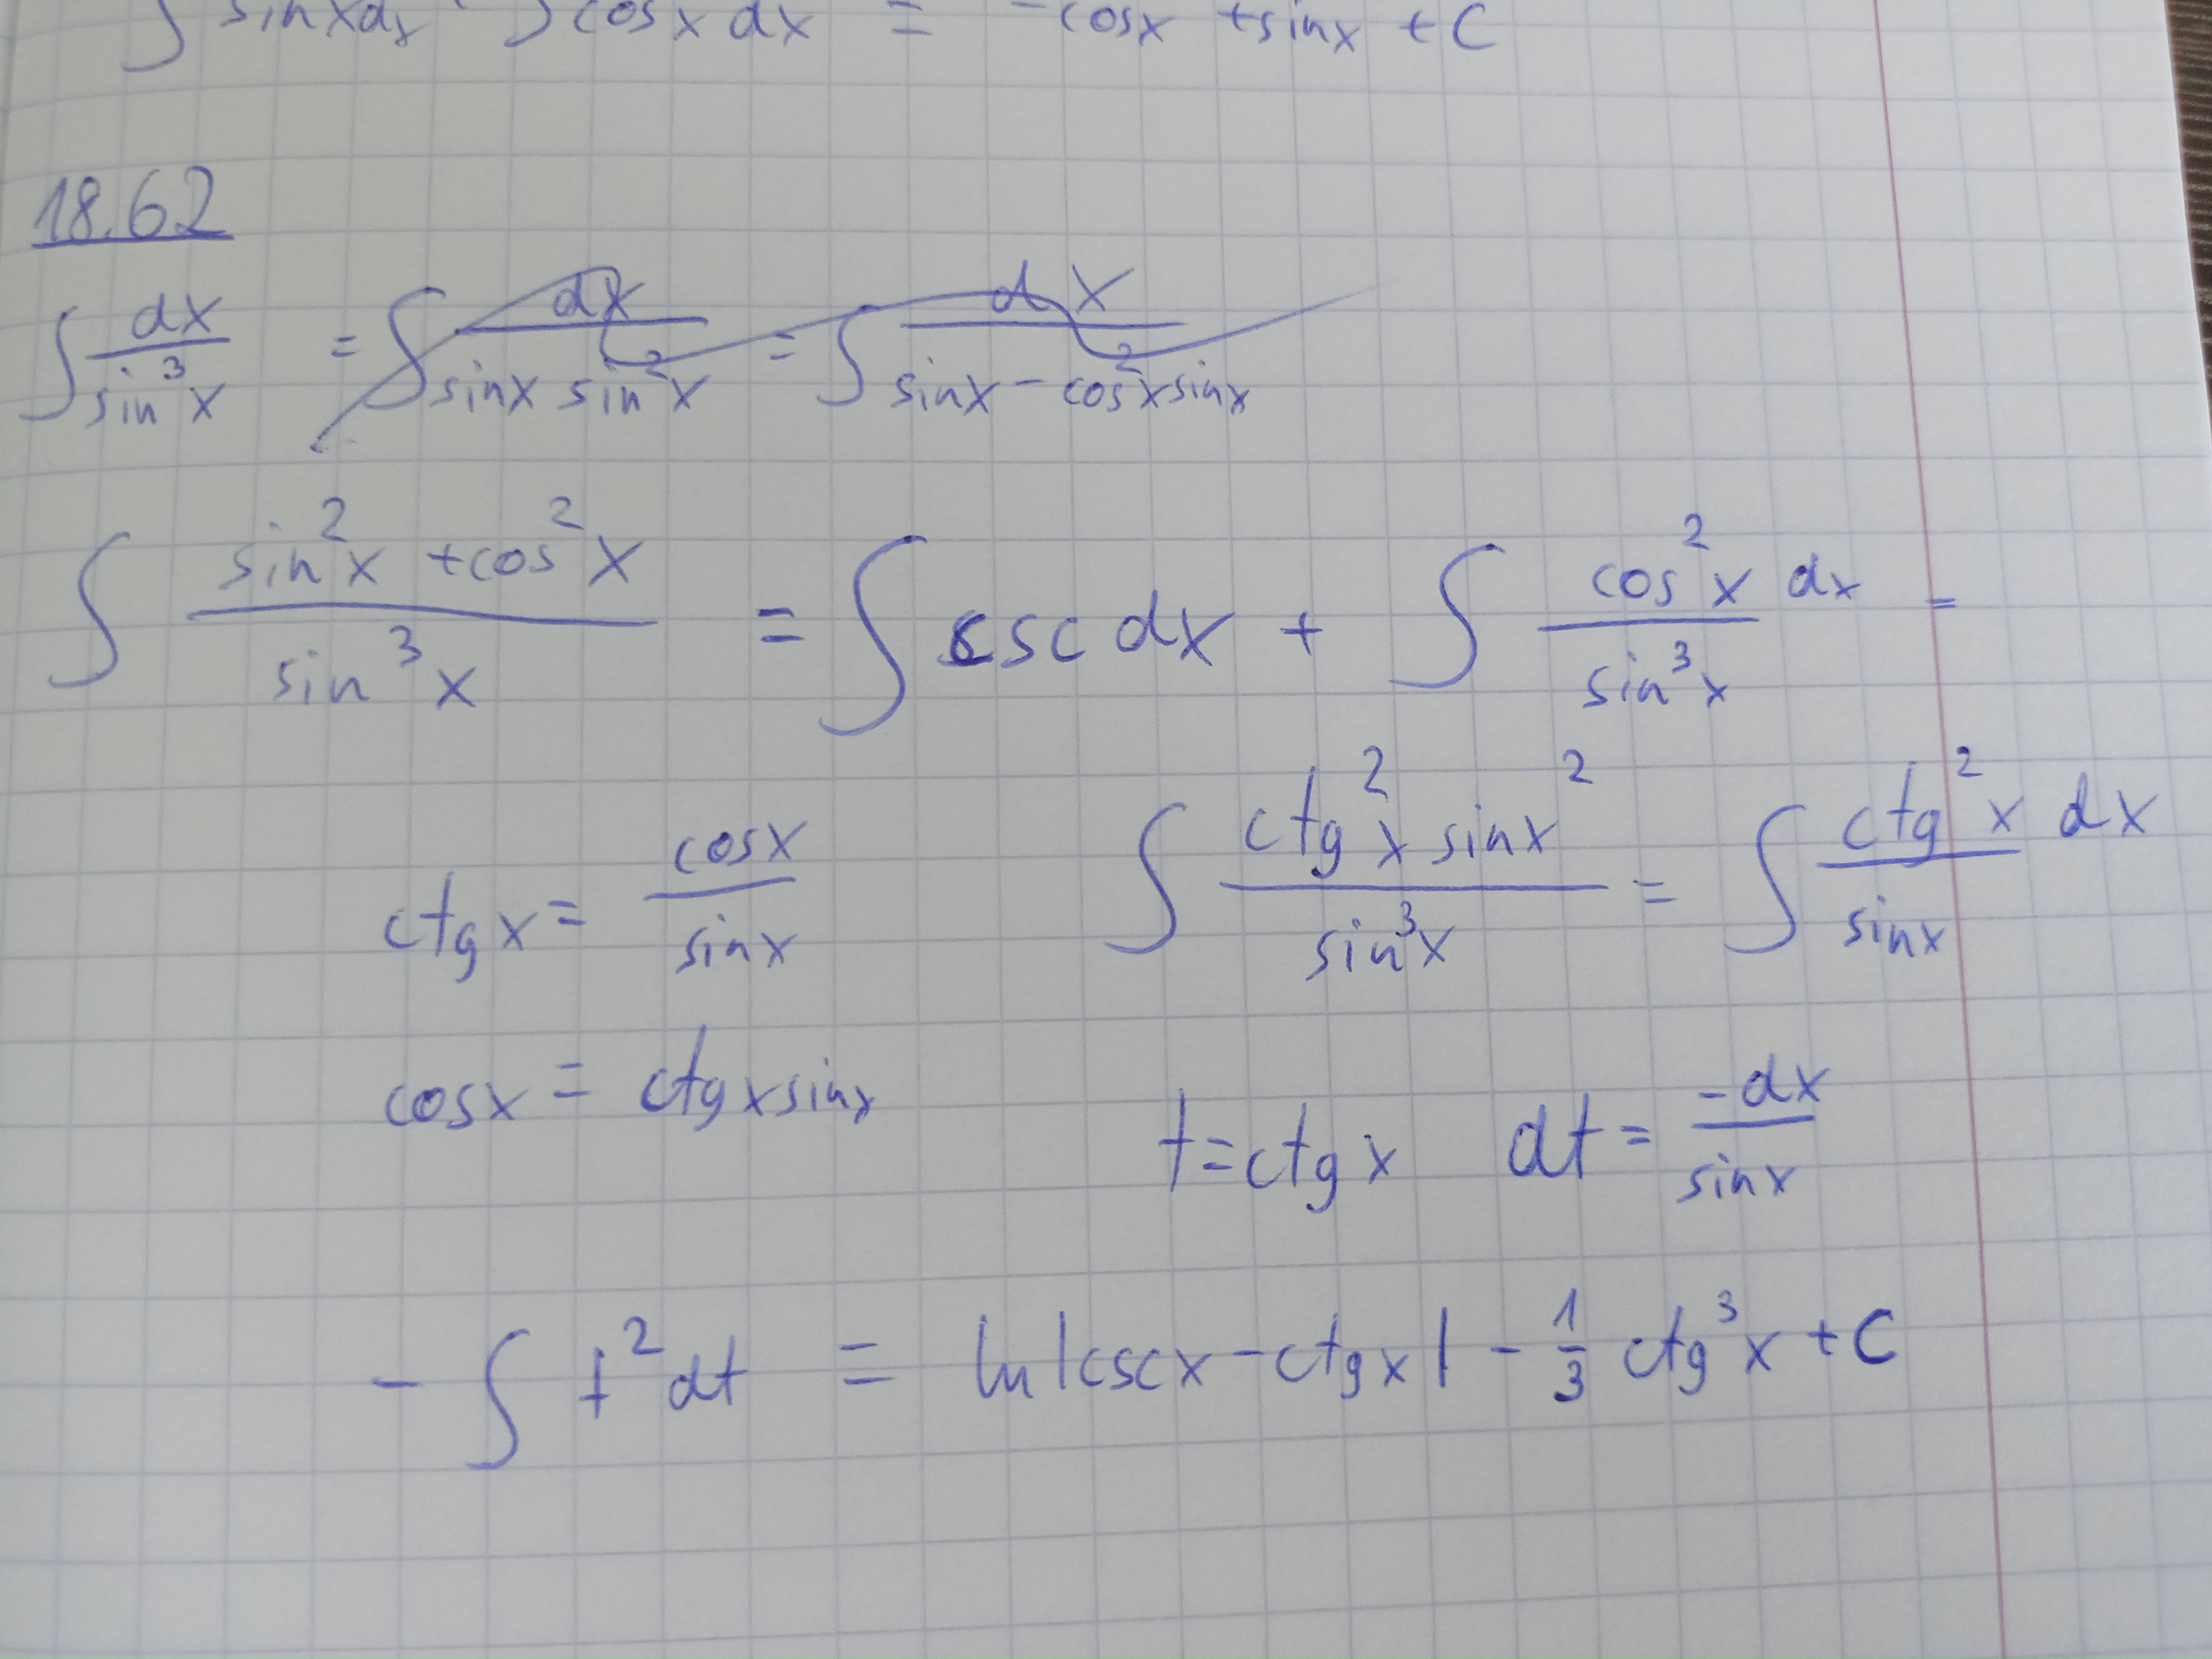 ∫ sinx dx · ∫ cosx dx = -cosx + sinx + C
18.62
∫ dx/sin³x = ∫ dx/(sinx sin²x) = ∫ dx/(sinx - cos²x sinx)
∫ (sin²x + cos²x)/sin³x = ∫ csc dx + ∫ cos²x/sin³x dx =
ctgx = cosx/sinx ∫ (ctg²x sinx²)/sin³x = ∫ ctg²x/sinx dx
cosx = ctgx sinx t = ctgx dt = -dx/sinx
- ∫ t² dt = ln|cscx - ctgx| - 1/3 ctg³x + C